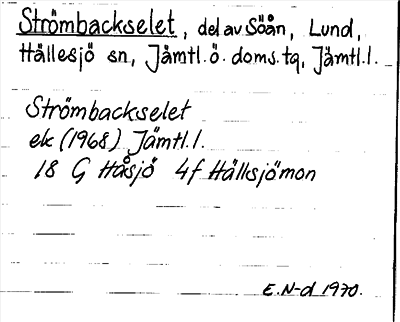 Strömbackselet, del av Söån, Lund,
Hällesjö sn, Jämtl. ö. doms. tg, Jämtl. l.
Strömbackselet
ek (1968) Jämtl. l.
18 G Håsjö 4f Hällesjömon
E. N-d 1970.